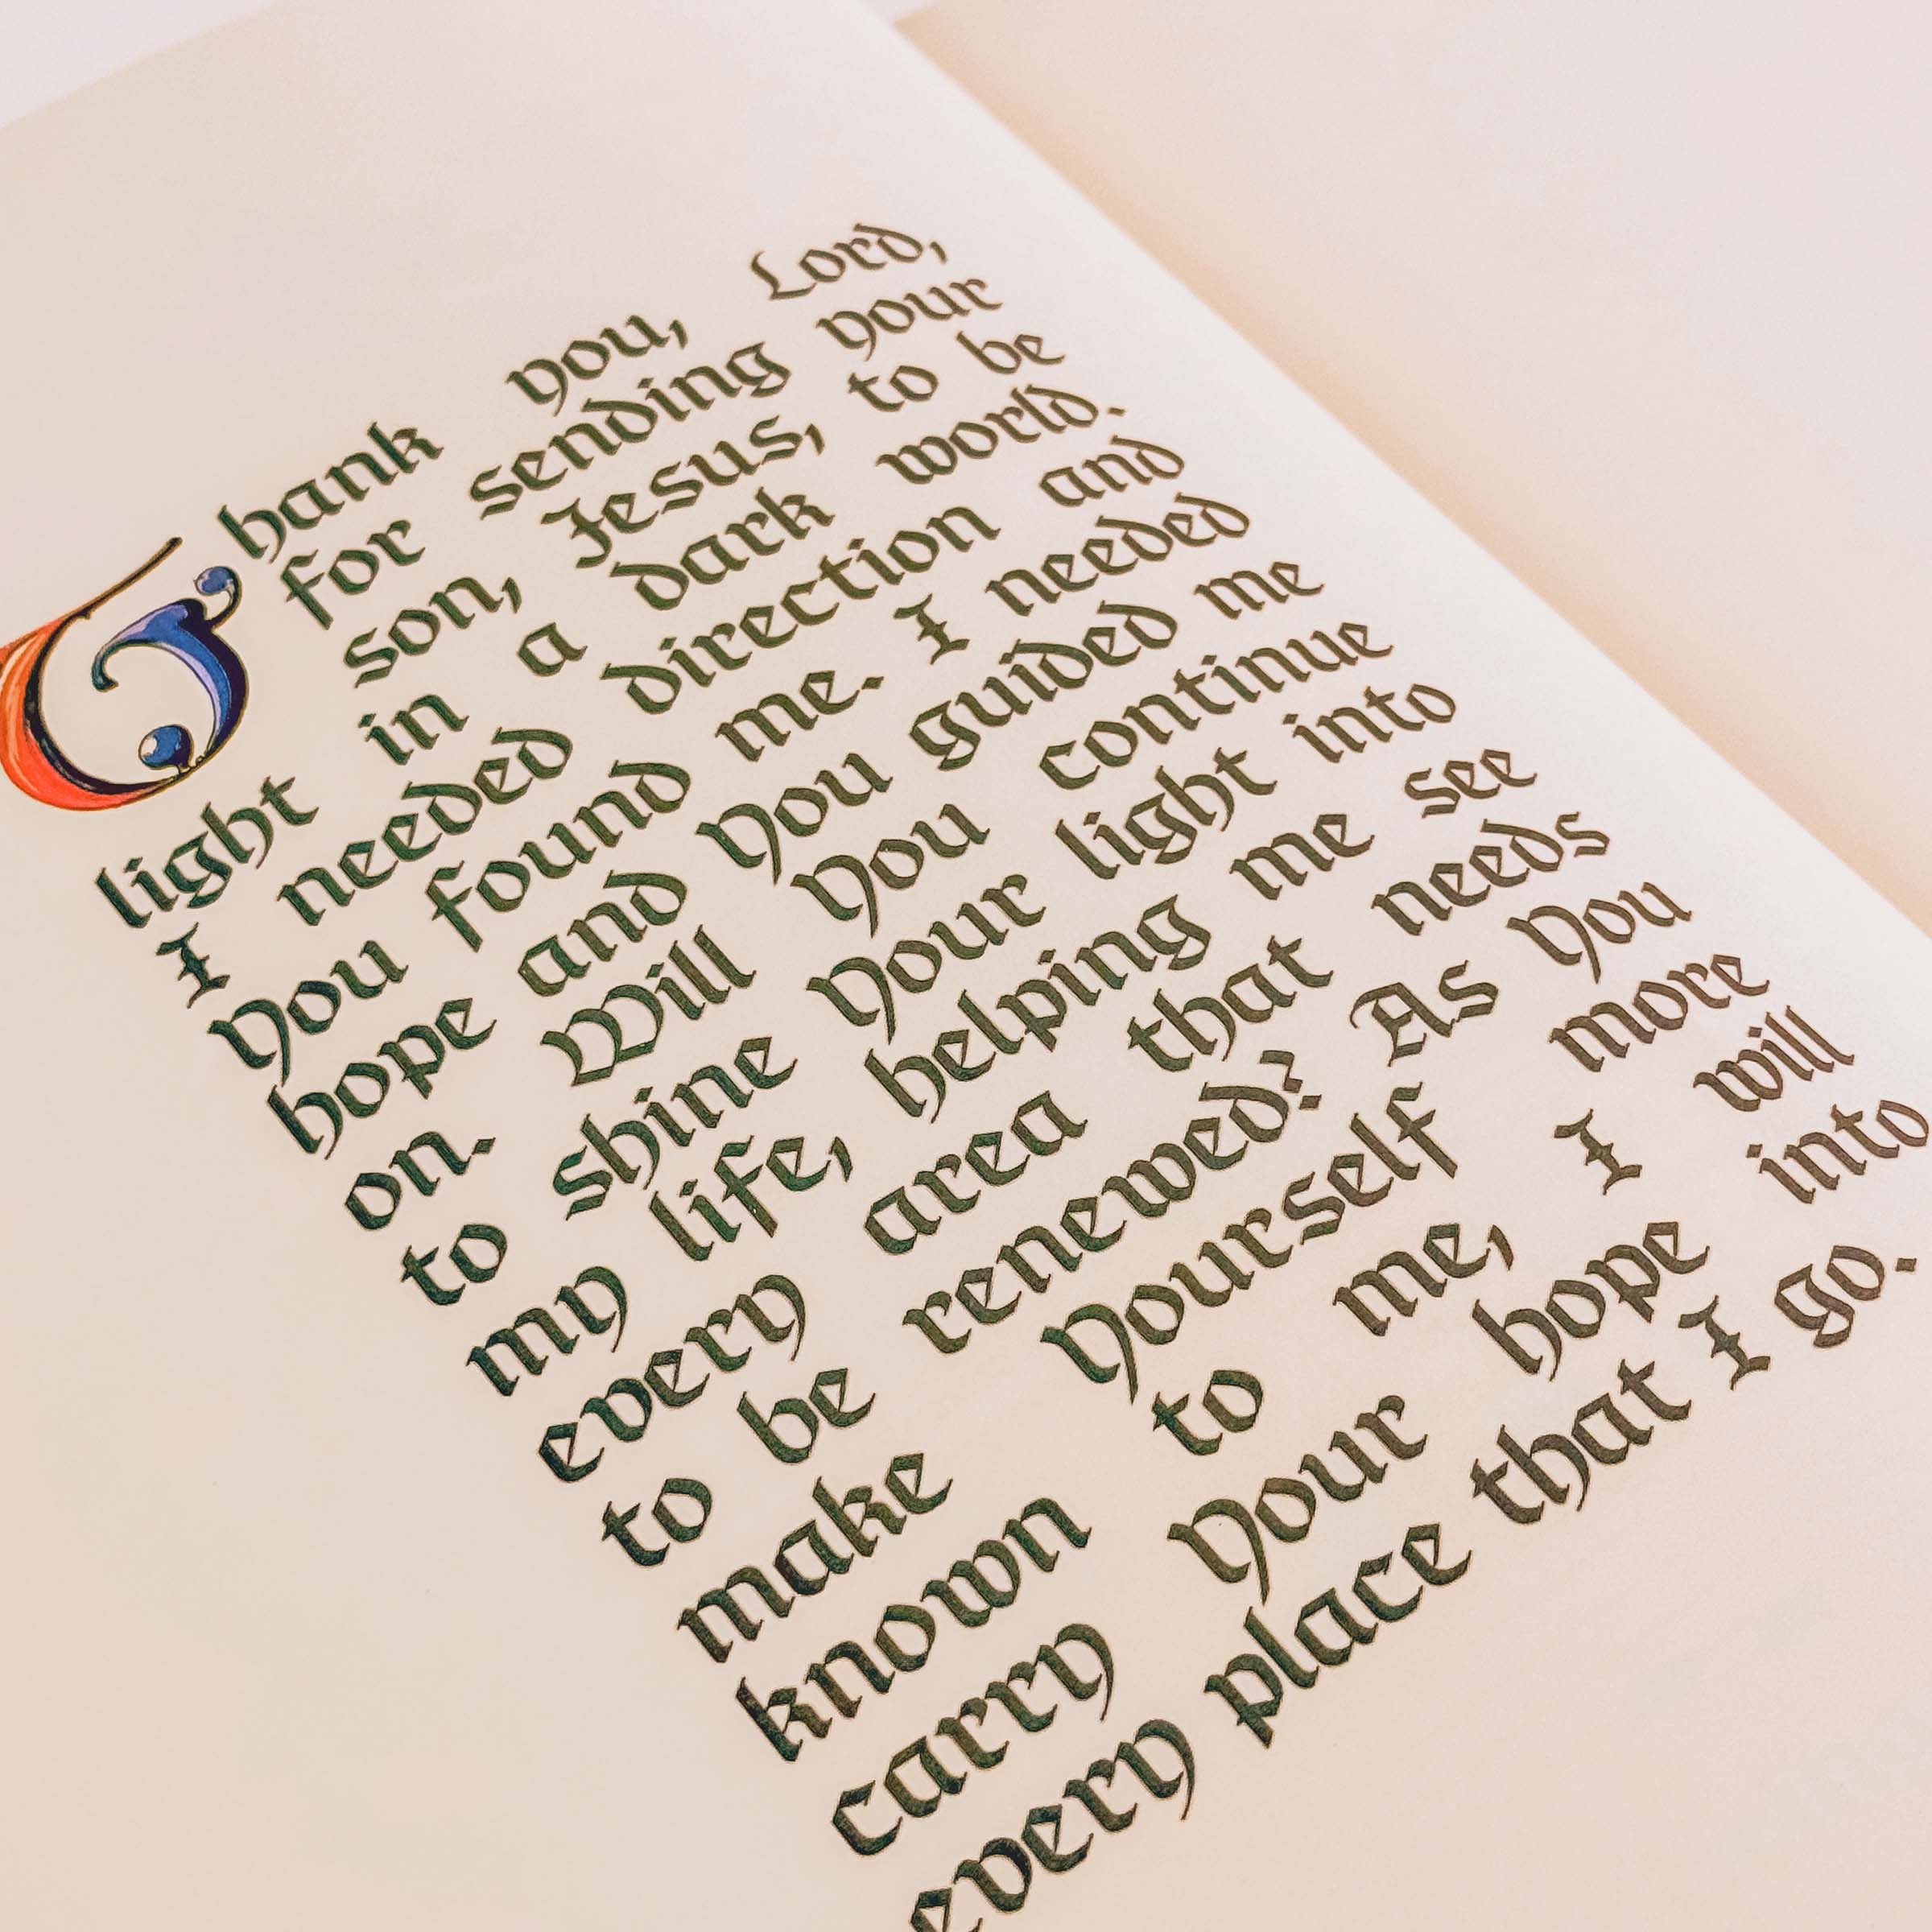 Thank you, Lord,
for sending your
son, Jesus, to be
light in a dark world.
I needed direction and
You found me. I needed
hope and You guided me
on. Will You continue
to shine Your light into
my life, helping me see
every area that needs
to be renewed? As You
make Yourself more
known to me, I will
carry Your hope into
every place that I go.